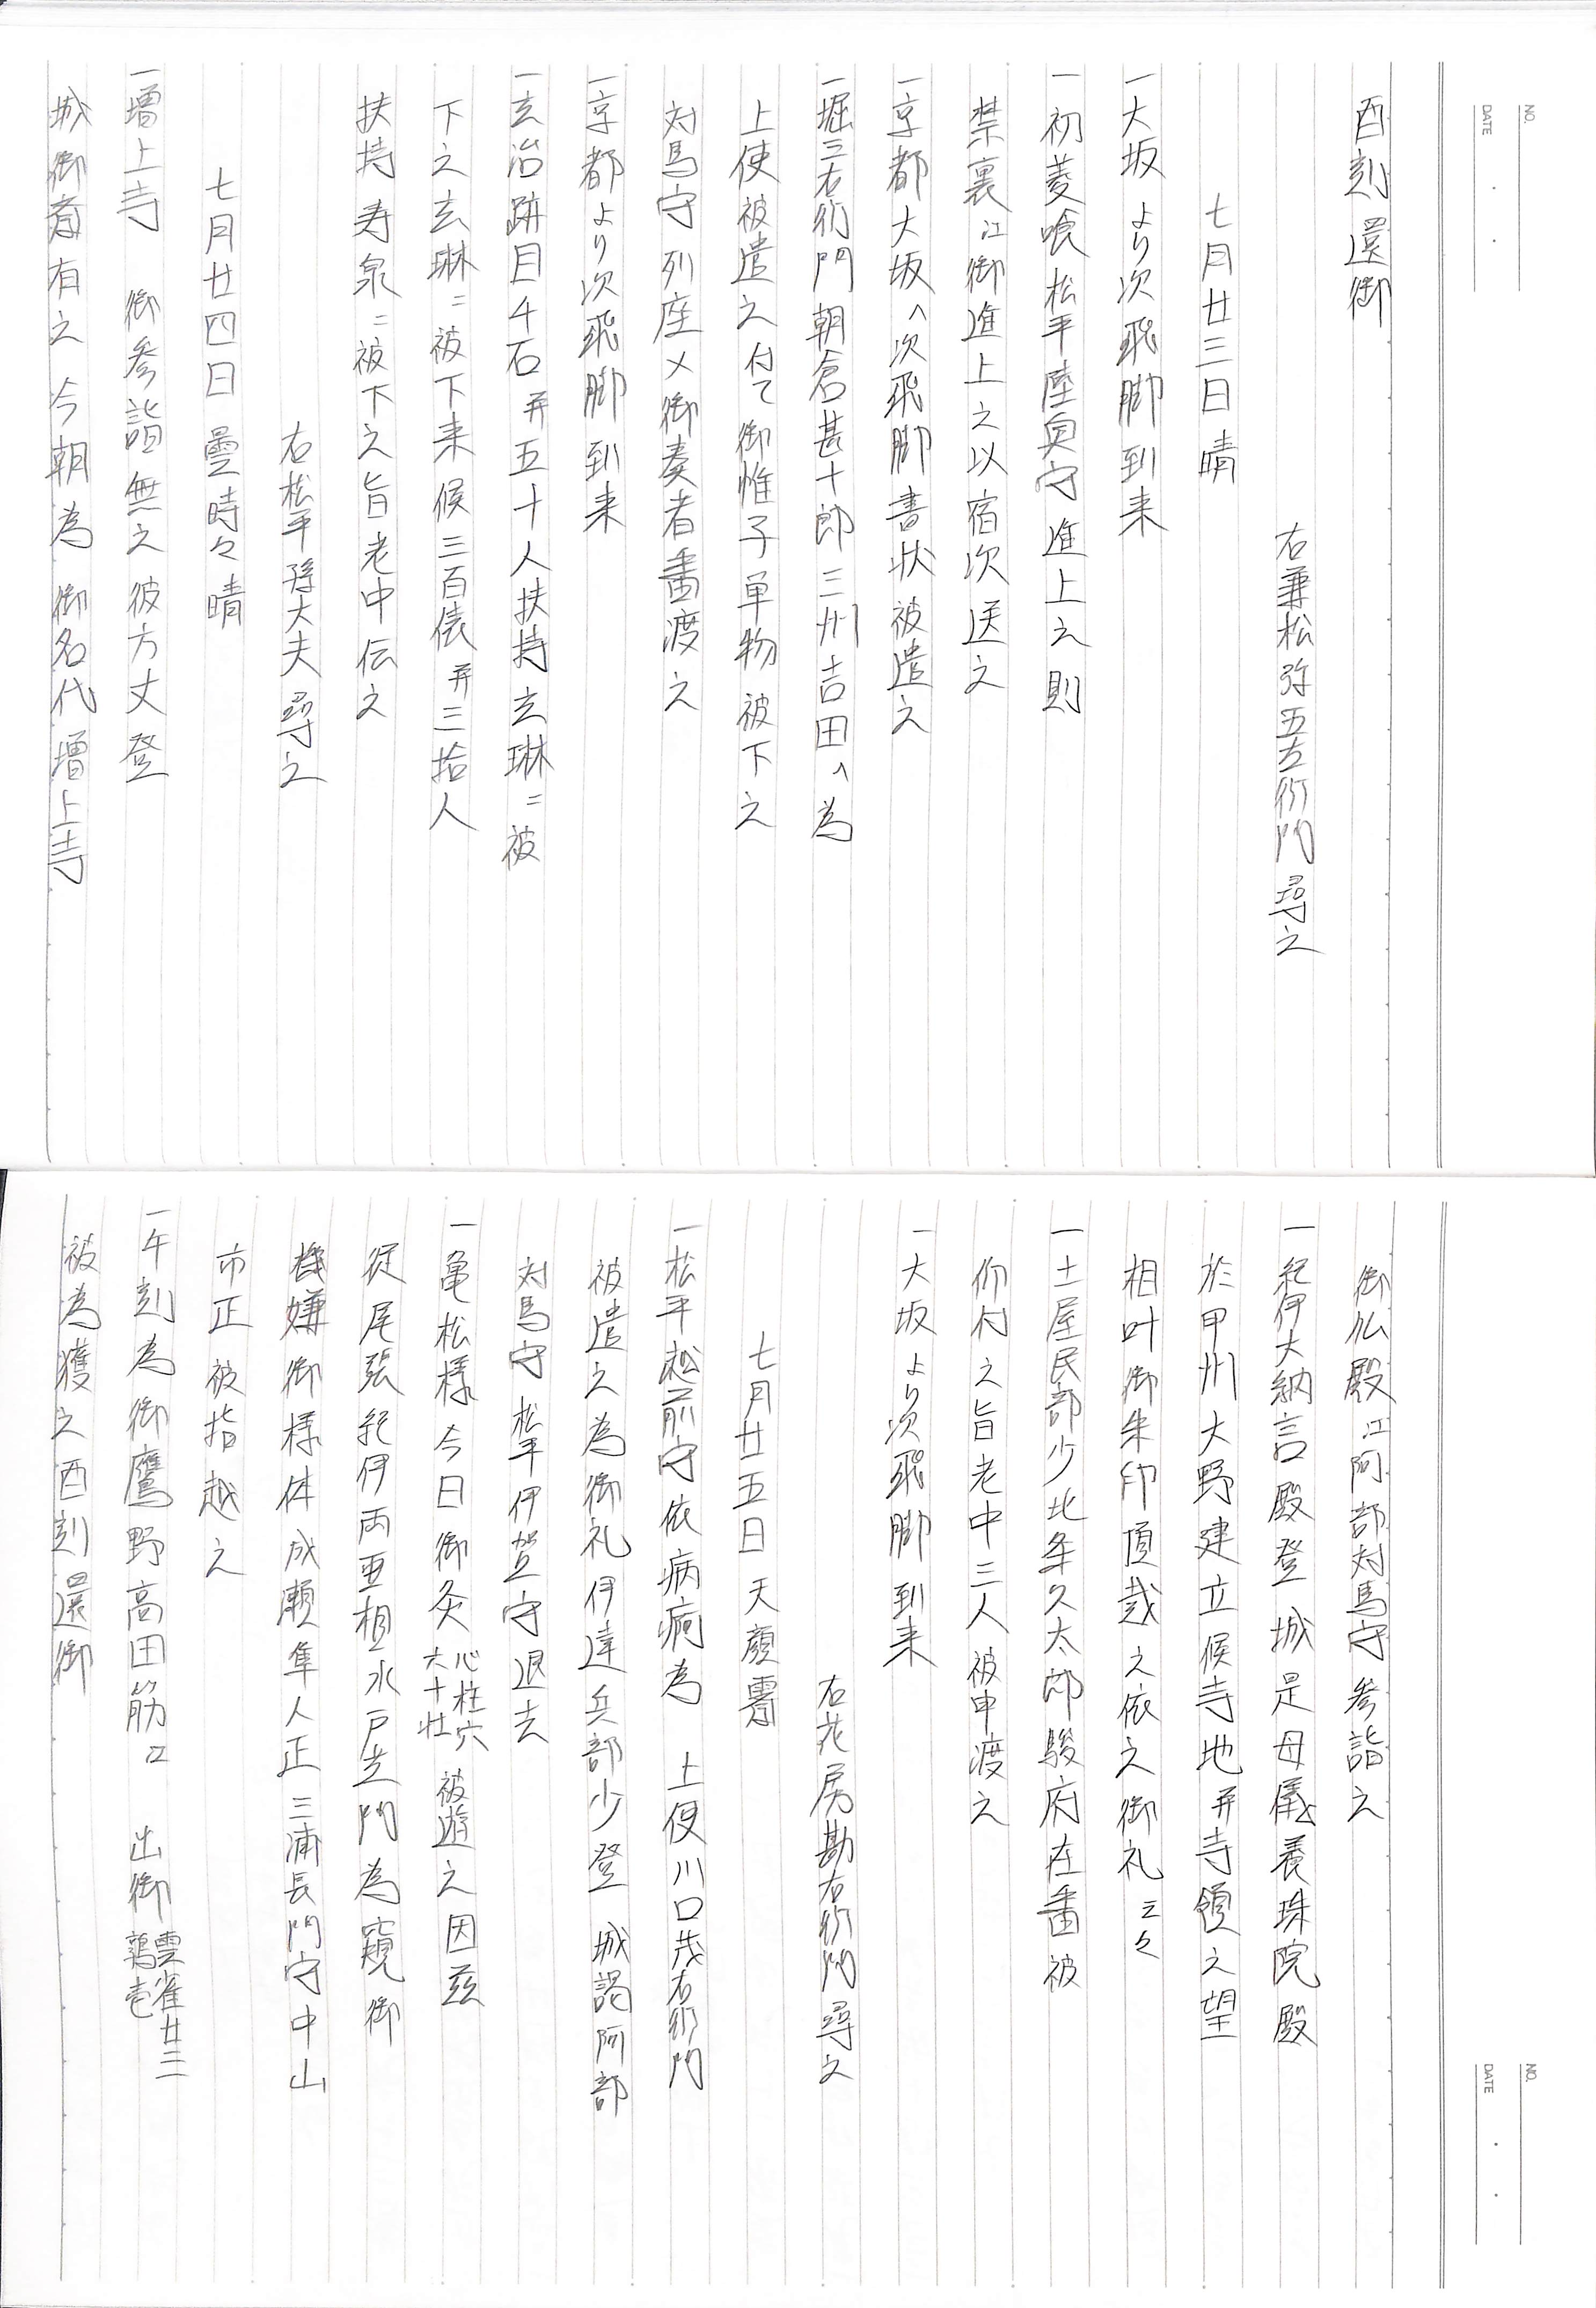 NO.
DATE
酉刻還御
右兼松弥五左衛門尋之
七月廿三日晴
一大坂より次飛脚到来
一初菱喰松平陸奥守進上之則
禁裏江御進上之以宿次送之
一京都大坂へ次飛脚書状被遣之
一堀三右衛門朝倉甚十郎三州吉田へ為
上使被遣之付て御帷子単物被下之
対馬守列座〆御奏者番渡之
一京都より次飛脚到来
一玄治跡目千石并五十人扶持玄琳ニ被
下之玄琳ニ被下来候三百俵并三拾人
扶持寿泉ニ被下之旨老中伝之
右松平孫大夫尋之
七月廿四日曇時々晴
一増上寺 御参詣無之彼方丈登
城御斎有之今朝為御名代増上寺
NO.
DATE
御仏殿江阿部対馬守参詣之
一紀伊大納言殿登城是母儀養珠院殿
於甲州大野建立候寺地并寺領之望
相叶御朱印頂戴之依之御礼云々
一土屋民部少北条久太郎駿府在番被
仰付之旨老中三人被申渡之
一大坂より次飛脚到来
右花房勘右衛門尋之
七月廿五日天顔霽
一松平越前守依病痾為 上使川口茂右衛門
被遣之為御礼伊達兵部少登 城謁阿部
対馬守松平伊賀守退去
一亀松様今日御灸心柱穴六十壮被遊之因茲
従尾張紀伊両亜相水戸黄門為窺御
機嫌御様体成瀬隼人正三浦長門守中山
市正被指越之
一午刻為御鷹野高田筋江 出御雲雀廿三鶉壱
被為獲之酉刻還御